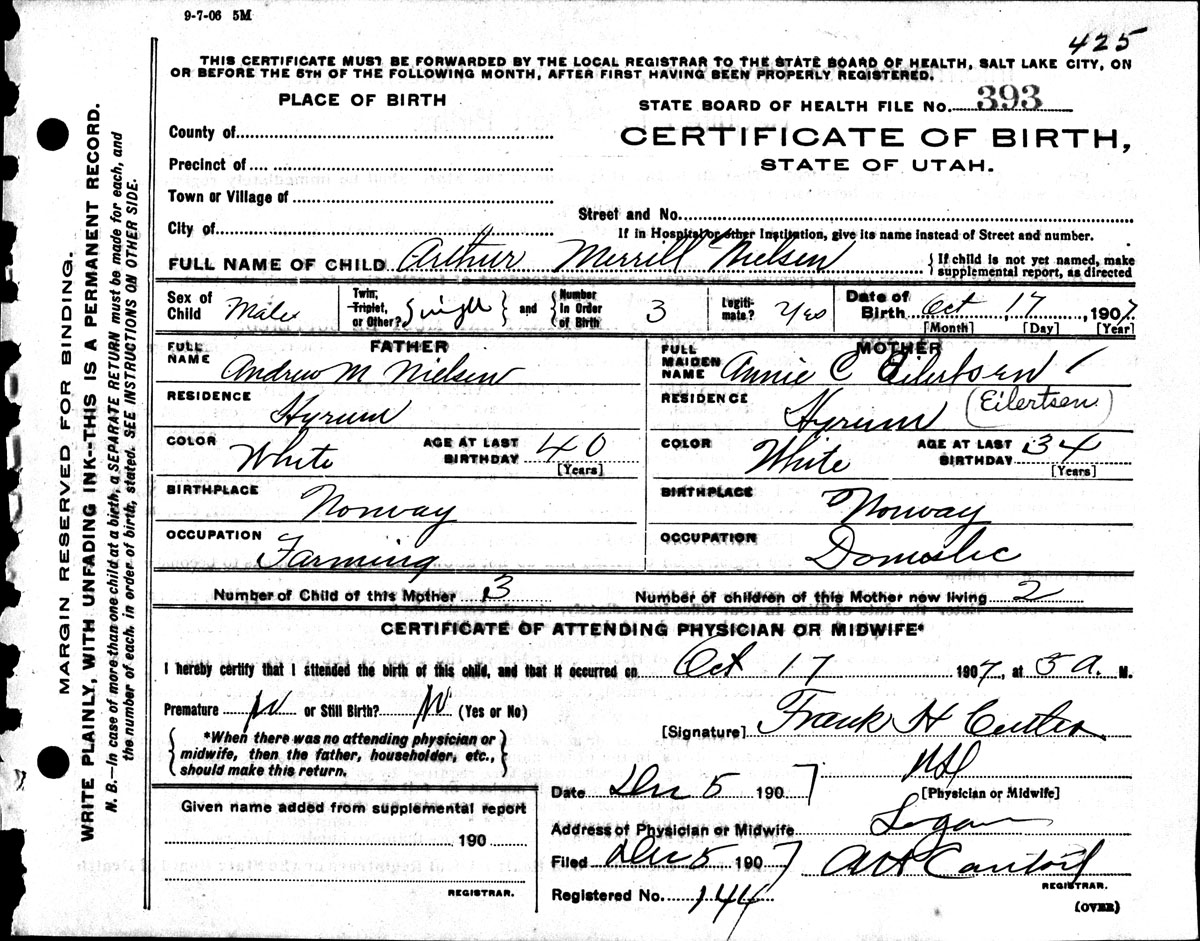 9-7-06 5M
425
THIS CERTIFICATE MUST BE FORWARDED BY THE LOCAL REGISTRAR TO THE STATE BOARD OF HEALTH, SALT LAKE CITY, ON
OR BEFORE THE 5TH OF THE FOLLOWING MONTH, AFTER FIRST HAVING BEEN PROPERLY REGISTERED.
PLACE OF BIRTH
STATE BOARD OF HEALTH FILE No. 393
County of
CERTIFICATE OF BIRTH,
Precinct of
STATE OF UTAH.
Town or Village of
Street and No.
City of
If in Hospital or other Institution, give its name instead of Street and number.
FULL NAME OF CHILD Arthur Merrill Nielsen
{ If child is not yet named, make
supplemental report, as directed
Sex of Child Male
Twin, Triplet, or Other? Single } and { Number In Order of Birth 3
Legitimate? Yes
Date of Birth Oct 17, 1907
[Month] [Day] [Year]
FATHER
FULL NAME Andrew M Nielsen
RESIDENCE Hyrum
COLOR White AGE AT LAST BIRTHDAY 40
[Years]
BIRTHPLACE Norway
OCCUPATION Farming
MOTHER
FULL MAIDEN NAME Annie C Eilertsen
RESIDENCE Hyrum (Eilertsen)
COLOR White AGE AT LAST BIRTHDAY 34
[Years]
BIRTHPLACE Norway
OCCUPATION Domestic
Number of Child of this Mother 3 Number of children of this Mother now living 2
CERTIFICATE OF ATTENDING PHYSICIAN OR MIDWIFE*
I hereby certify that I attended the birth of this child, and that it occurred on Oct 17 1907, at 5 a. M.
Premature No or Still Birth? No (Yes or No)
{ *When there was no attending physician or
midwife, then the father, householder, etc.,
should make this return. }
[Signature] Frank H
MD
[Physician or Midwife]
Date Dec 5 1907
Given name added from supplemental report
190
REGISTRAR.
Address of Physician or Midwife Logan
Filed Dec 5 1907
REGISTRAR.
Registered No. 144
(OVER)
MARGIN RESERVED FOR BINDING.
WRITE PLAINLY, WITH UNFADING INK--THIS IS A PERMANENT RECORD.
N. B.—In case of more than one child at a birth, a SEPARATE RETURN must be made for each, and
the number of each, in order of birth, stated. SEE INSTRUCTIONS ON OTHER SIDE.